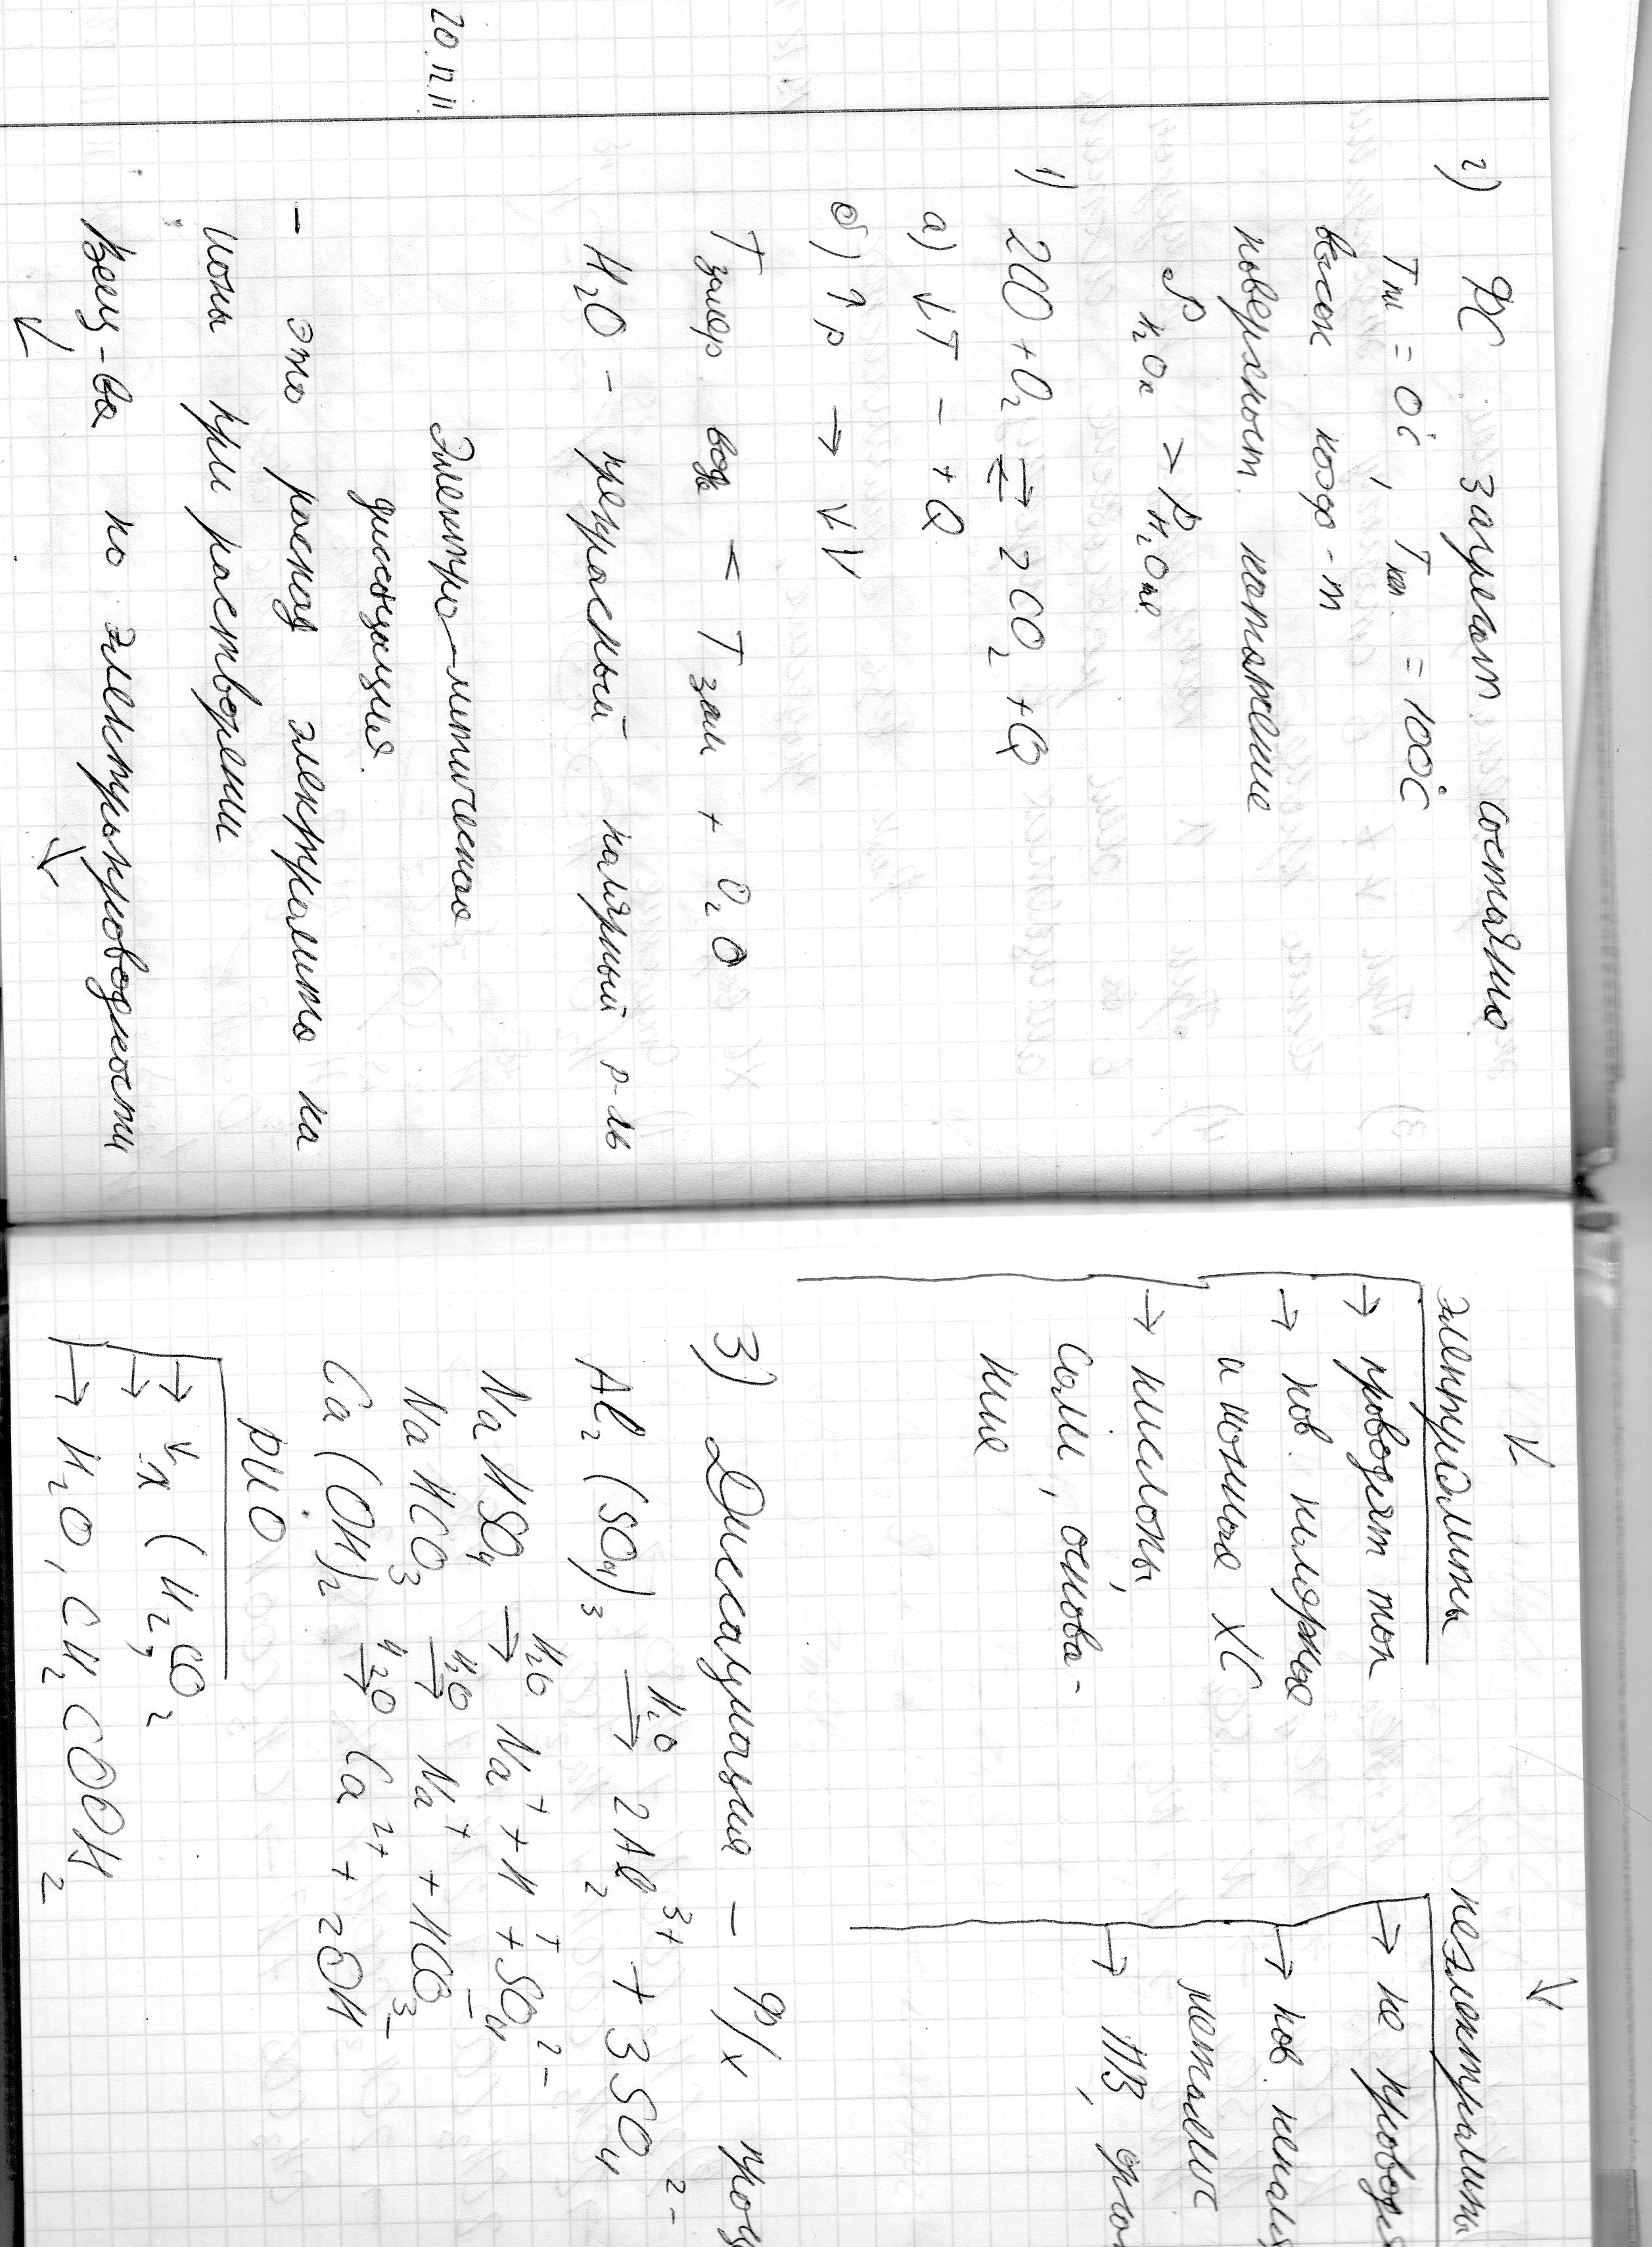 2) ФС загрегат. состаяние
Tпл = 0°C, Tкип. = 100°C
высок коэф-т
поверхност. натяжение
P H2Oж > P H2Oтв
1) 2CO + O2 ⇄ 2CO2 + Q
а) ↓T - +Q
б) ↑p → ↓V
T замер. воды < T зам + O2O
H2O - прекрасный палярный р-ль
20.12.11
Электро-литическая
диссоцация.
- это распад электралита на
ионы при растворении
Вещ-ва по электрыпроводности
↓ ↓
↓ ↓
электралиты
→ проводят ток
→ ков. палярные
и ионная ХС
→ кислоты,
соли, основа-
ния
неэлектралиты
→ не проводя
→ ков. непаля
металлис
→ ПВ,
3) Диссацуиация - ф/х проц
Al2(SO4)3 H2O→ 2Al2 3+ + 3SO4 2-
NaHSO4 H2O→ Na+ + H+ + SO4 2-
NaHCO3 H2O→ Na+ + HCO3-
Ca(OH)2 H2O→ Ca2+ + 2OH
РИО
→
→ ↓x (H2, CO2
→ H2O, CH2COOH2